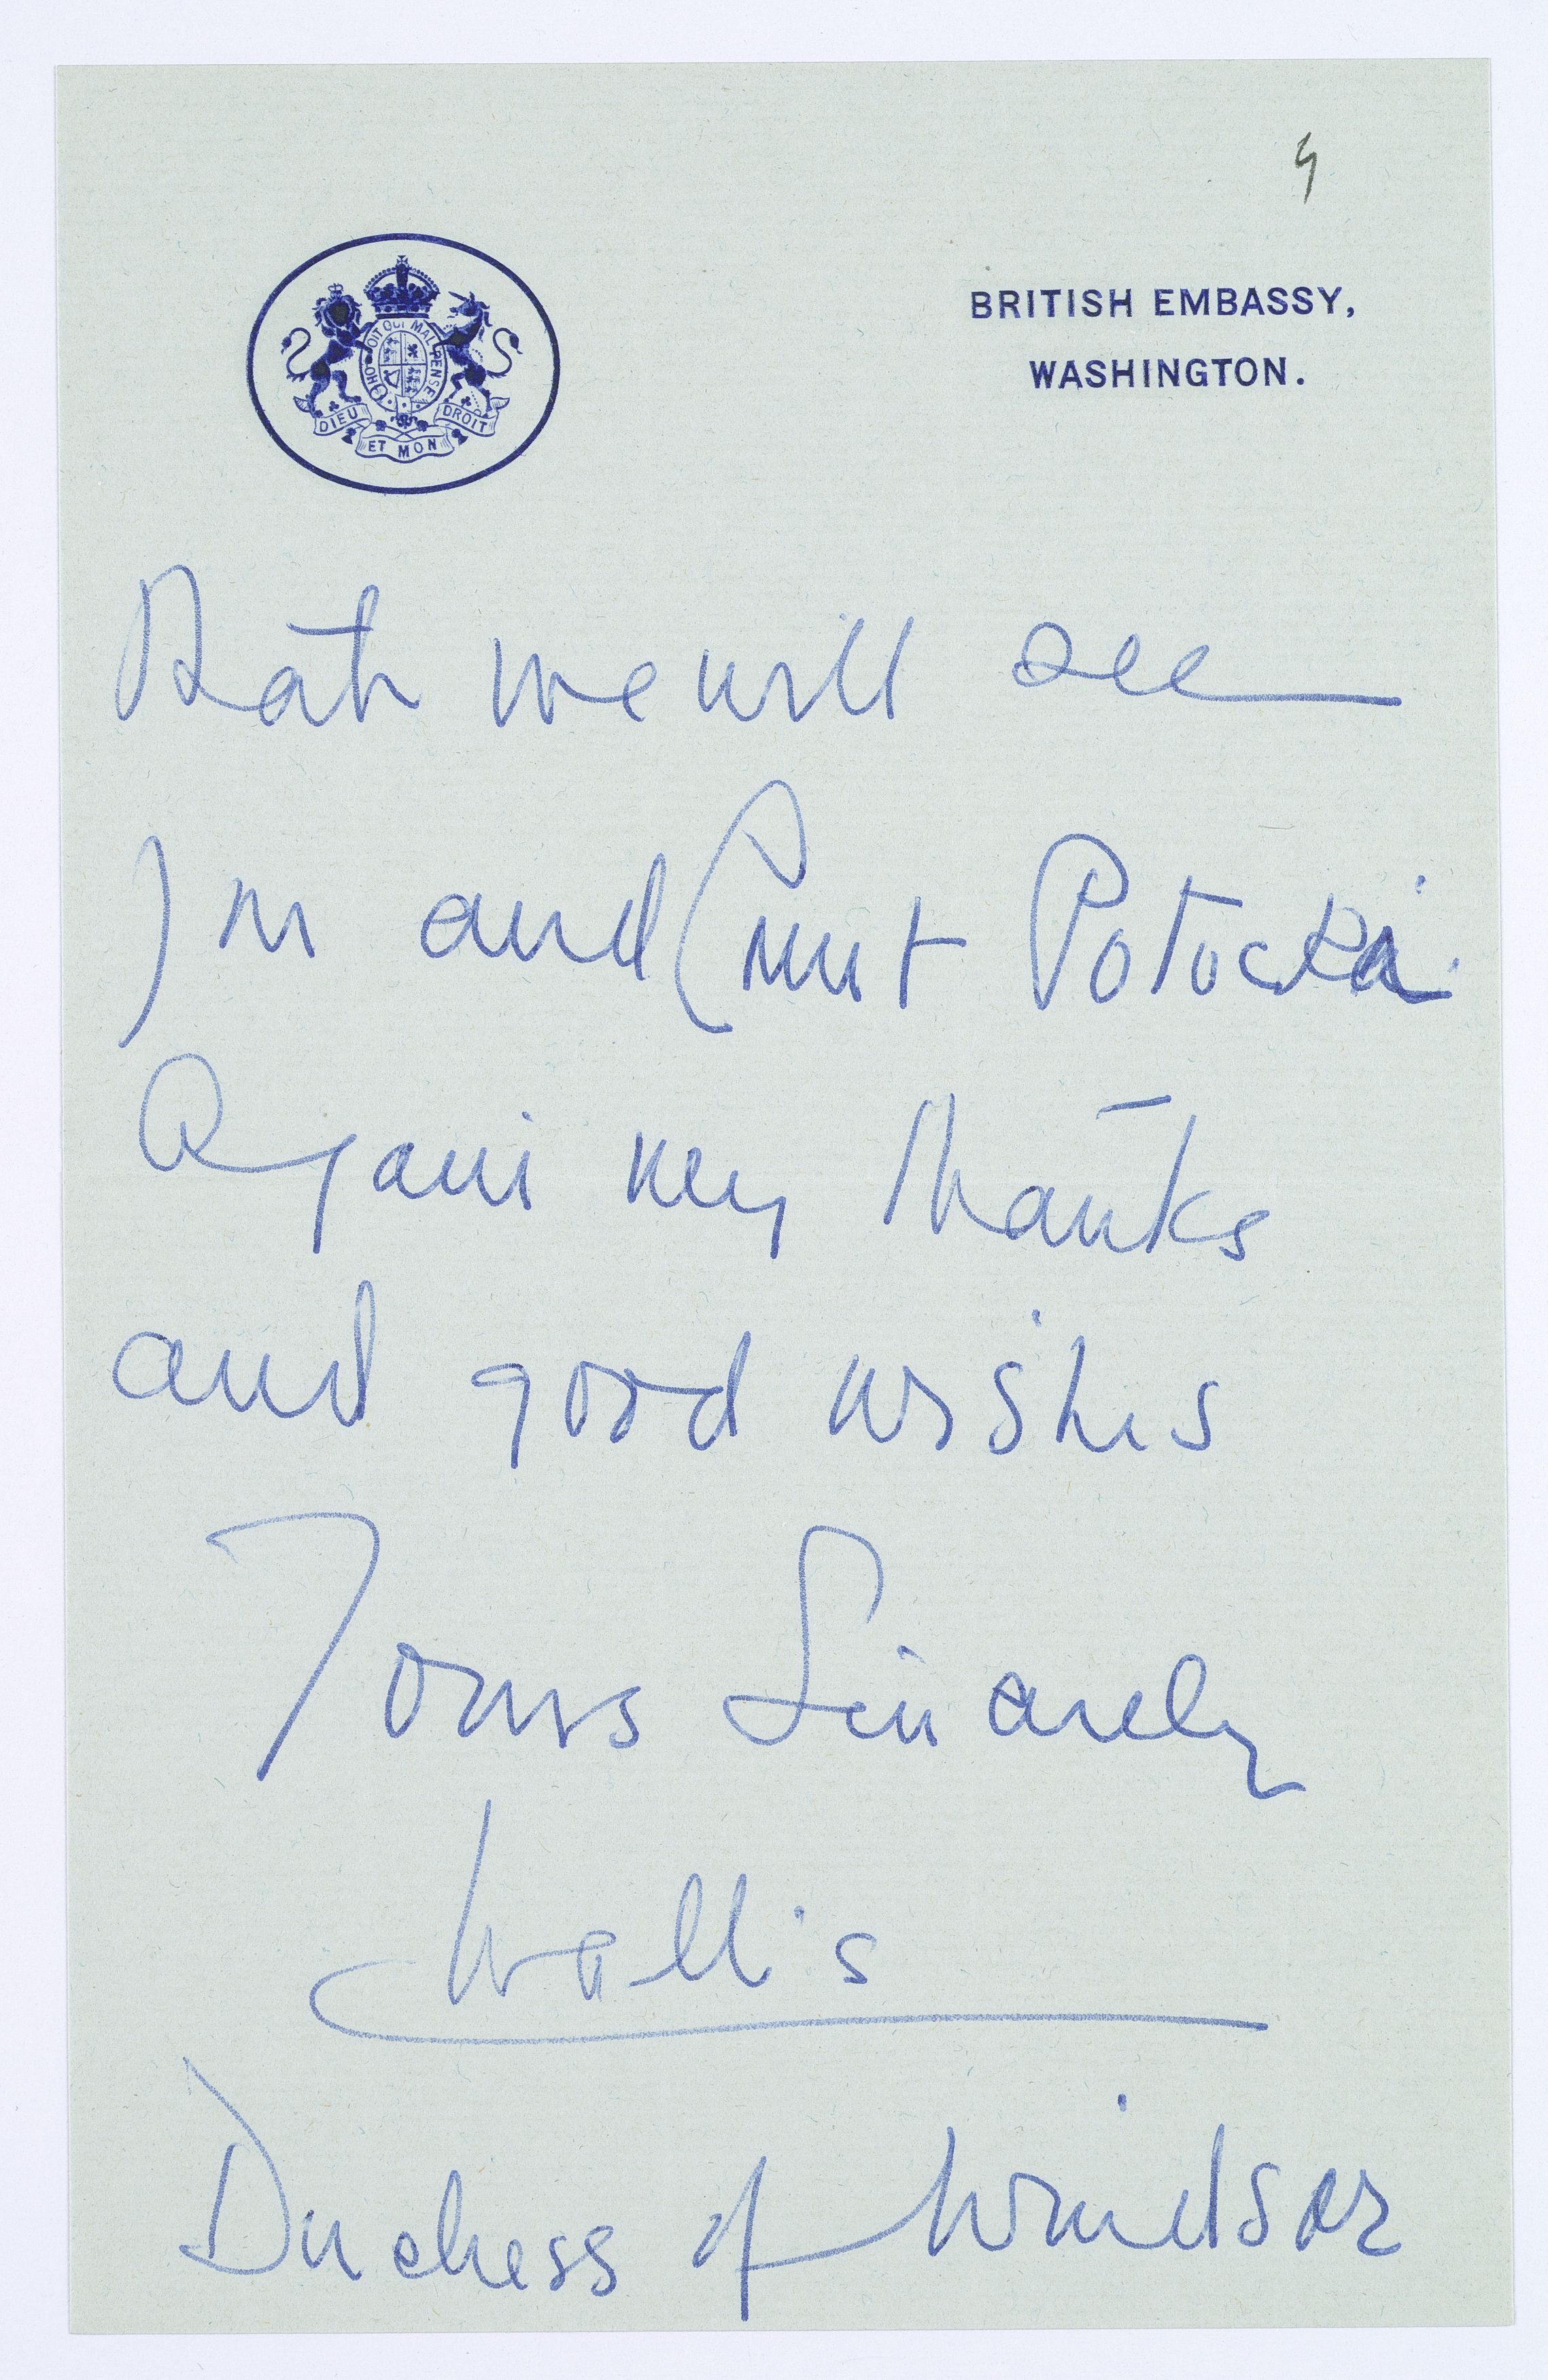 4
BRITISH EMBASSY,
WASHINGTON.
HONI SOIT QUI MAL Y PENSE
DIEU ET MON DROIT
That we will see
you and Count Potocki.
Again my thanks
and good wishes
Yours Sincerely
Wallis
Duchess of Windsor